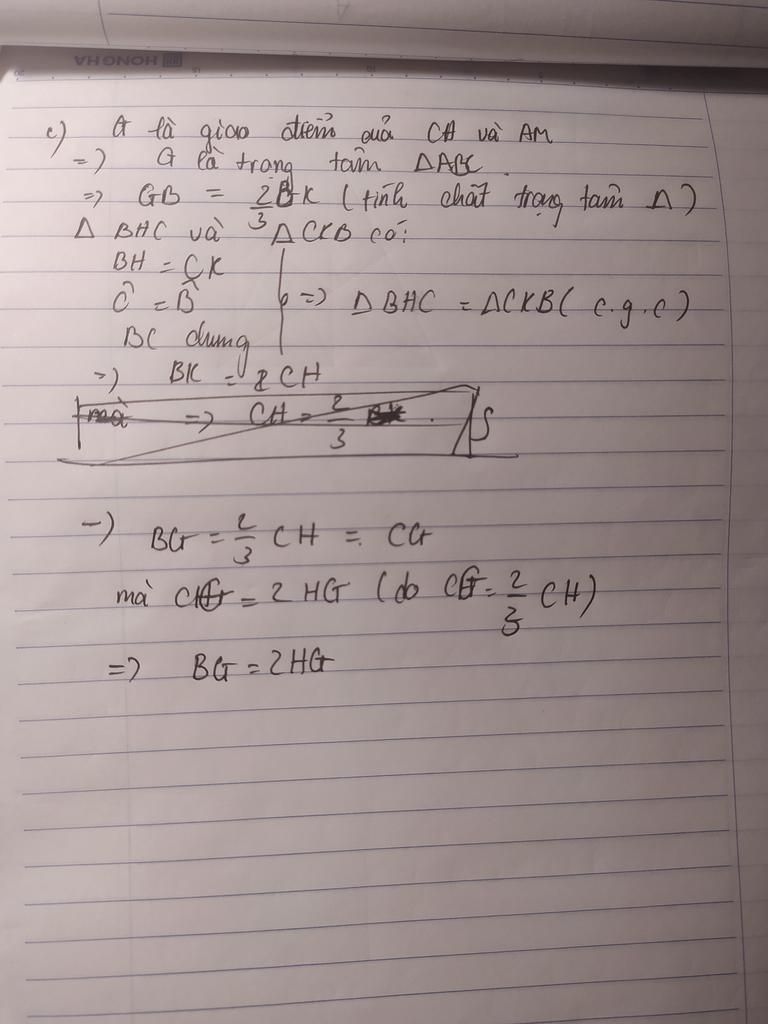 HONG HA
c) G là giao điểm của CH và AM
=) G là trọng tâm ΔABC.
=> GB = 2/3 BK (tính chất trọng tâm Δ)
Δ BHC và ΔCKB có:
BH = CK
Ĉ = B̂
=) Δ BHC = ΔCKB ( c.g.c)
BC chung
=) BK = CH
mà => CH = 2/3 BK.
-) BG = 2/3 CH = CG
mà CG = 2 HG (do CG = 2/3 CH)
=> BG = 2HG